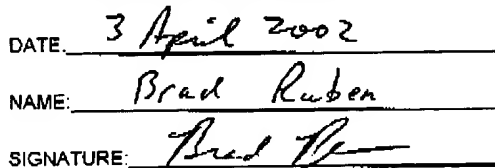 DATE. 3 April 2002
NAME: Brad Ruben
SIGNATURE: Brad